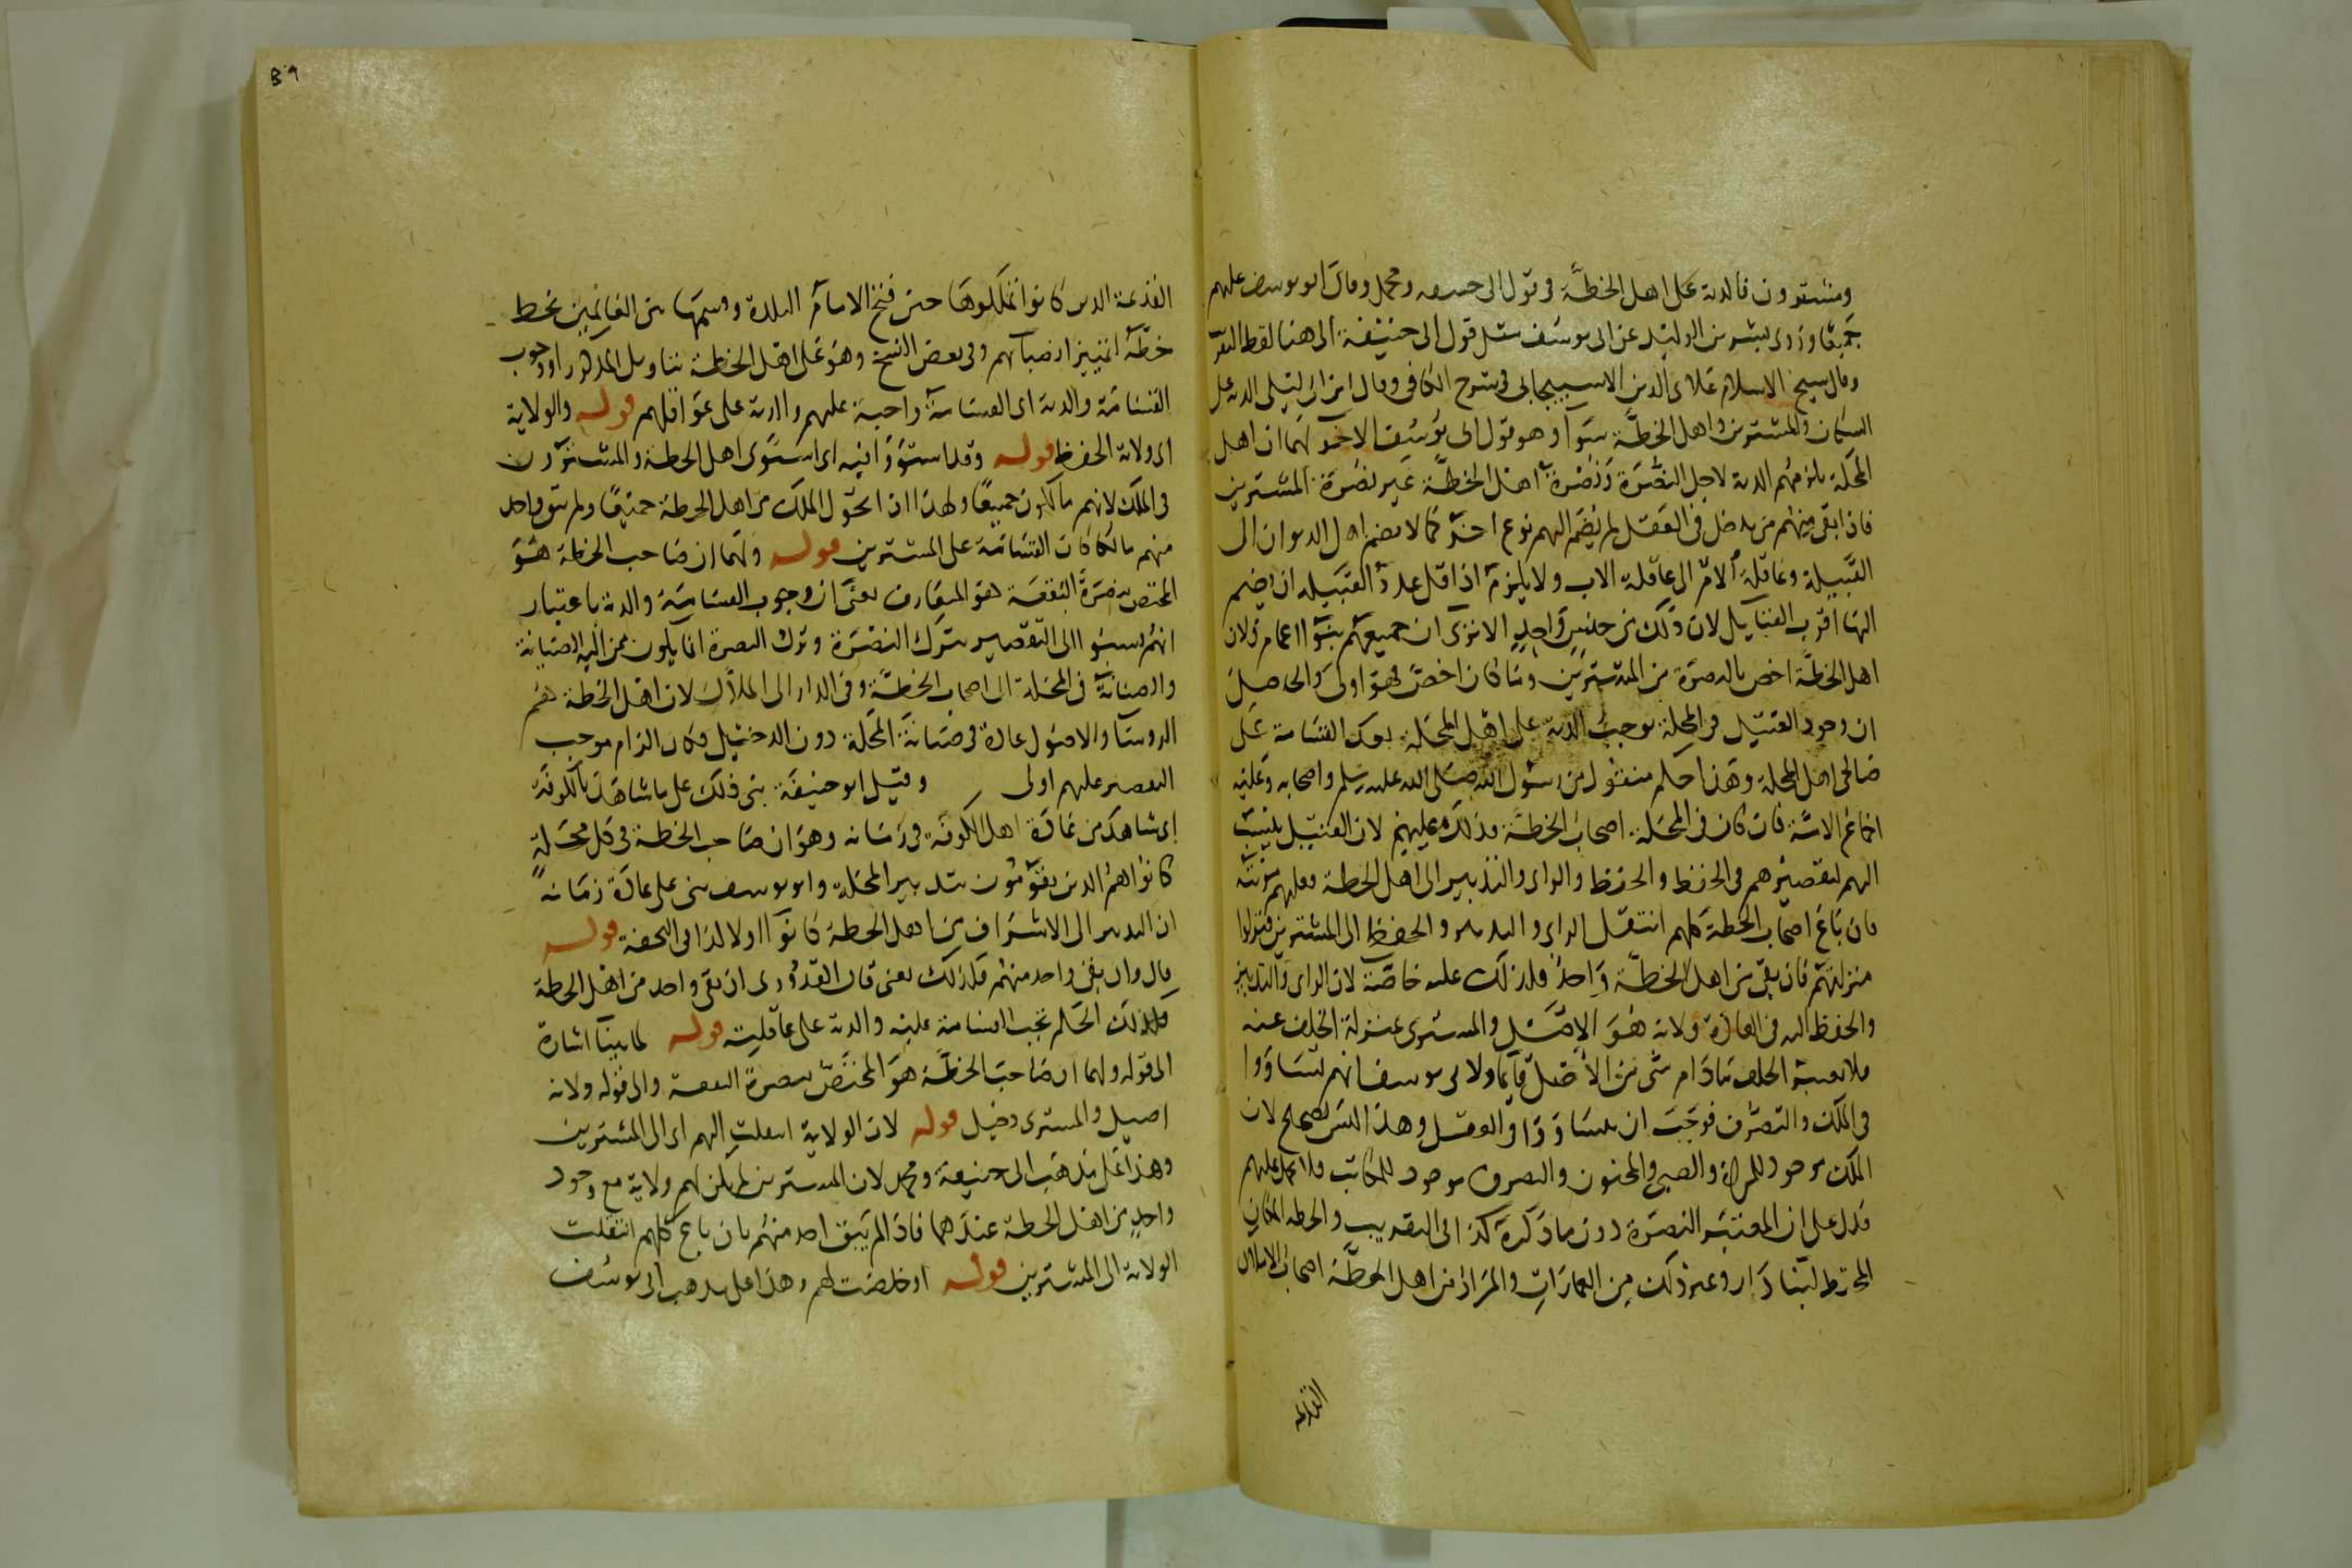 ومشترون فالدية على اهل الخطة في قول ابي حنيفه ومحمد وقال ابو يوسف عليهم
جميعا وروى بشر بن الوليد عن ابي يوسف مثل قول ابي حنيفة الى هنا لفظ التقر
وقال شيخ الاسلام علاء الدين الاسبيجابي في شرح الكافي وقال ابن ابي ليلى الدية على
السكان والمشترين واهل الخطة سوآ وهو قول ابي يوسف الاخر لهما ان اهل
المحلة يلزمهم الدية لاجل النصرة ونصرة اهل الخطة غير نصرة المشترين
فاذا بقى منهم من يدخل في العقل لم يضم اليهم نوع اخر كما لا يضم اهل الديوان الى
القبيلة وعاقلة الام الى عاقلة الاب ولا يلزم اذا قل عدد القبيله ان يضم
اليها اقرب القبايل لان ذلك من جنس واحد الا ترى ان جميعهم بنوا اعمام ولان
اهل الخطة اخص بالنصرة من المشترين وما كان اخص فهو اولى والحاصل
ان وجود القتيل في المحلة يوجب الدية على اهل المحلة بعد القسامة على
صالحي اهل المحلة وهذا حكم منقول من رسول الله صلى الله عليه وسلم واصحابه وعليه
اجماع الامة فان كان في المحلة اصحاب الخطة فذلك عليهم لان القتيل ينسب
اليهم لتقصيرهم في الحفظ والحفظ والراى والتدبير الى اهل الخطة فعليهم مؤنته
فان باع اصحاب الخطة كلهم انتقل الراى والتدبير والحفظ الى المشترين فنزلوا
منزلتهم فان بقى من اهل الخطة واحد فلذلك عليه خاصة لان الراى والتدبير
والحفظ اليه في العادة ولانه هو الاصل والمشترى بمنزلة الخلف عنه
فلا يعتبر الخلف مادام شى من الاصل قايما ولابي يوسف انهم تساووا
في الملك والتصرف فوجب ان يتساووا في العقل وهذا ليس بصحيح لان
الملك موجود للمراة والصبي والمجنون والتصرف موجود للمكاتب ولا عقل عليهم
فدل على ان المعتبر النصرة دون ما ذكره كذا في التقريب والخطه المكان
المختط لبناء دار وغير ذلك من العمارات والمراد من اهل الخطة اصحاب الاملاك
القديمة
القديمة الذين كانوا تملكوها حين فتح الامام البلدة وقسمها بين الغانمين بخط
خطة لتمييز انصبائهم وفي بعض النسخ وهو على اهل الخطة بتاويل المذكور او وجوب
القسامة والدية اى القسامة واجبة عليهم والدية على عواقلهم قوله والولاية
اى ولاية الحفظ قوله وقد استووا فيه اى استوى اهل الخطة والمشترون
في الملك لانهم مالكون جميعا ولهذا اذا تحول الملك من اهل الخطة جميعا ولم يبق واحد
منهم مالكا كانت القسامة على المشترين قوله ولهما ان صاحب الخطة هو
المختص بنصرة البقعة هو المتعارف يعنى ان وجوب القسامة والدية باعتبار
انهم نسبوا الى التقصير بترك النصرة وترك النصرة انما يكون ممن اليه الصيانة
والصيانة في المحلة الى اصحاب الخطة وفي الدار الى الملاك لان اهل الخطة هم
الروسا والاصول عادة في صيانة المحلة دون الدخيل فكان الزام موجب
التقصير عليهم اولى وقيل ابو حنيفة بنى ذلك على ما شاهد بالكوفة
اى شاهد من عادة اهل الكوفة في زمانه وهو ان صاحب الخطة في كل محلة
كانوا هم الذين يقومون بتدبير المحلة وابو يوسف بنى على عادة زمانه
ان التدبير الى الاشراف من اهل الخطة كانوا اولا كذا في التحفة قوله
قال وان بقى واحد منهم فكذلك يعنى قال القدورى ان بقى واحد من اهل الخطة
فكذلك الحكم تجب القسامة عليه والدية على عاقلته قوله لما بينا اشارة
الى قوله ولهما ان صاحب الخطة هو المختص بنصرة البقعة والى قوله ولانه
اصيل والمشترى دخيل قوله لان الولاية انتقلت اليهم اى الى المشترين
وهذا على مذهب ابي حنيفة ومحمد لان المشترين لم يكن لهم ولاية مع وجود
واحد من اهل الخطة عندهما فاذا لم يبق احد منهم بان باع كلهم انتقلت
الولاية الى المشترين قوله او خلصت لهم وهذا على مذهب ابي يوسف